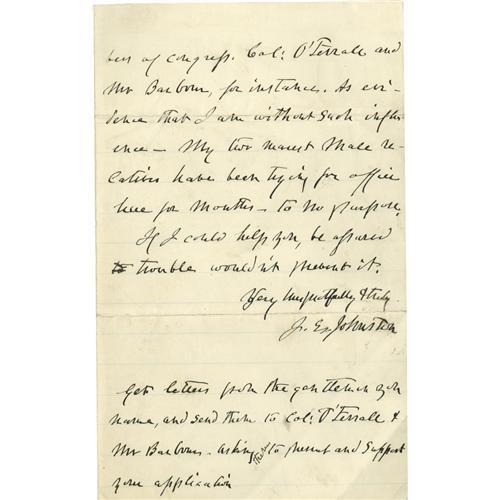 bers of Congress. Col: O'Ferrall and
Mr Barbour, for instance. As evi-
dence that I am without such influ
ence - My two nearest male re-
latives have been trying for office
here for months - to no purpose.
If I could help you, be assured
to trouble wouldn't prevent it.
Very respectfully & truly
J. E. Johnston
Get letters from the gentlemen you
name, and send them to Col: O'Ferrall &
Mr Barbour - asking them to present and support
your application